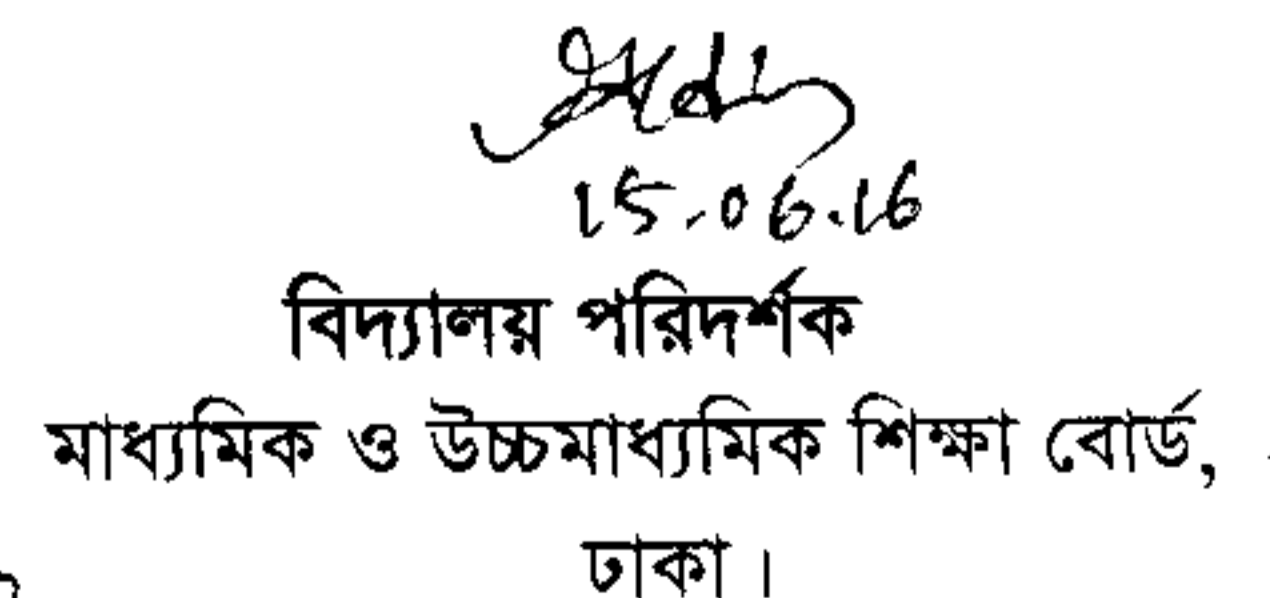 15.06.16
বিদ্যালয় পরিদর্শক
মাধ্যমিক ও উচ্চমাধ্যমিক শিক্ষা বোর্ড,
ঢাকা।